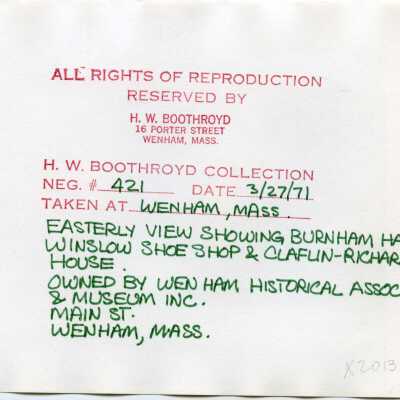 ALL RIGHTS OF REPRODUCTION
RESERVED BY
H. W. BOOTHROYD
16 PORTER STREET
WENHAM, MASS.
H. W. BOOTHROYD COLLECTION
NEG. # 421 DATE 3/27/71
TAKEN AT WENHAM, MASS.
EASTERLY VIEW SHOWING BURNHAM HA
WINSLOW SHOE SHOP & CLAFLIN-RICHAR
HOUSE.
OWNED BY WENHAM HISTORICAL ASSOC
& MUSEUM INC.
MAIN ST.
WENHAM, MASS.
X2013